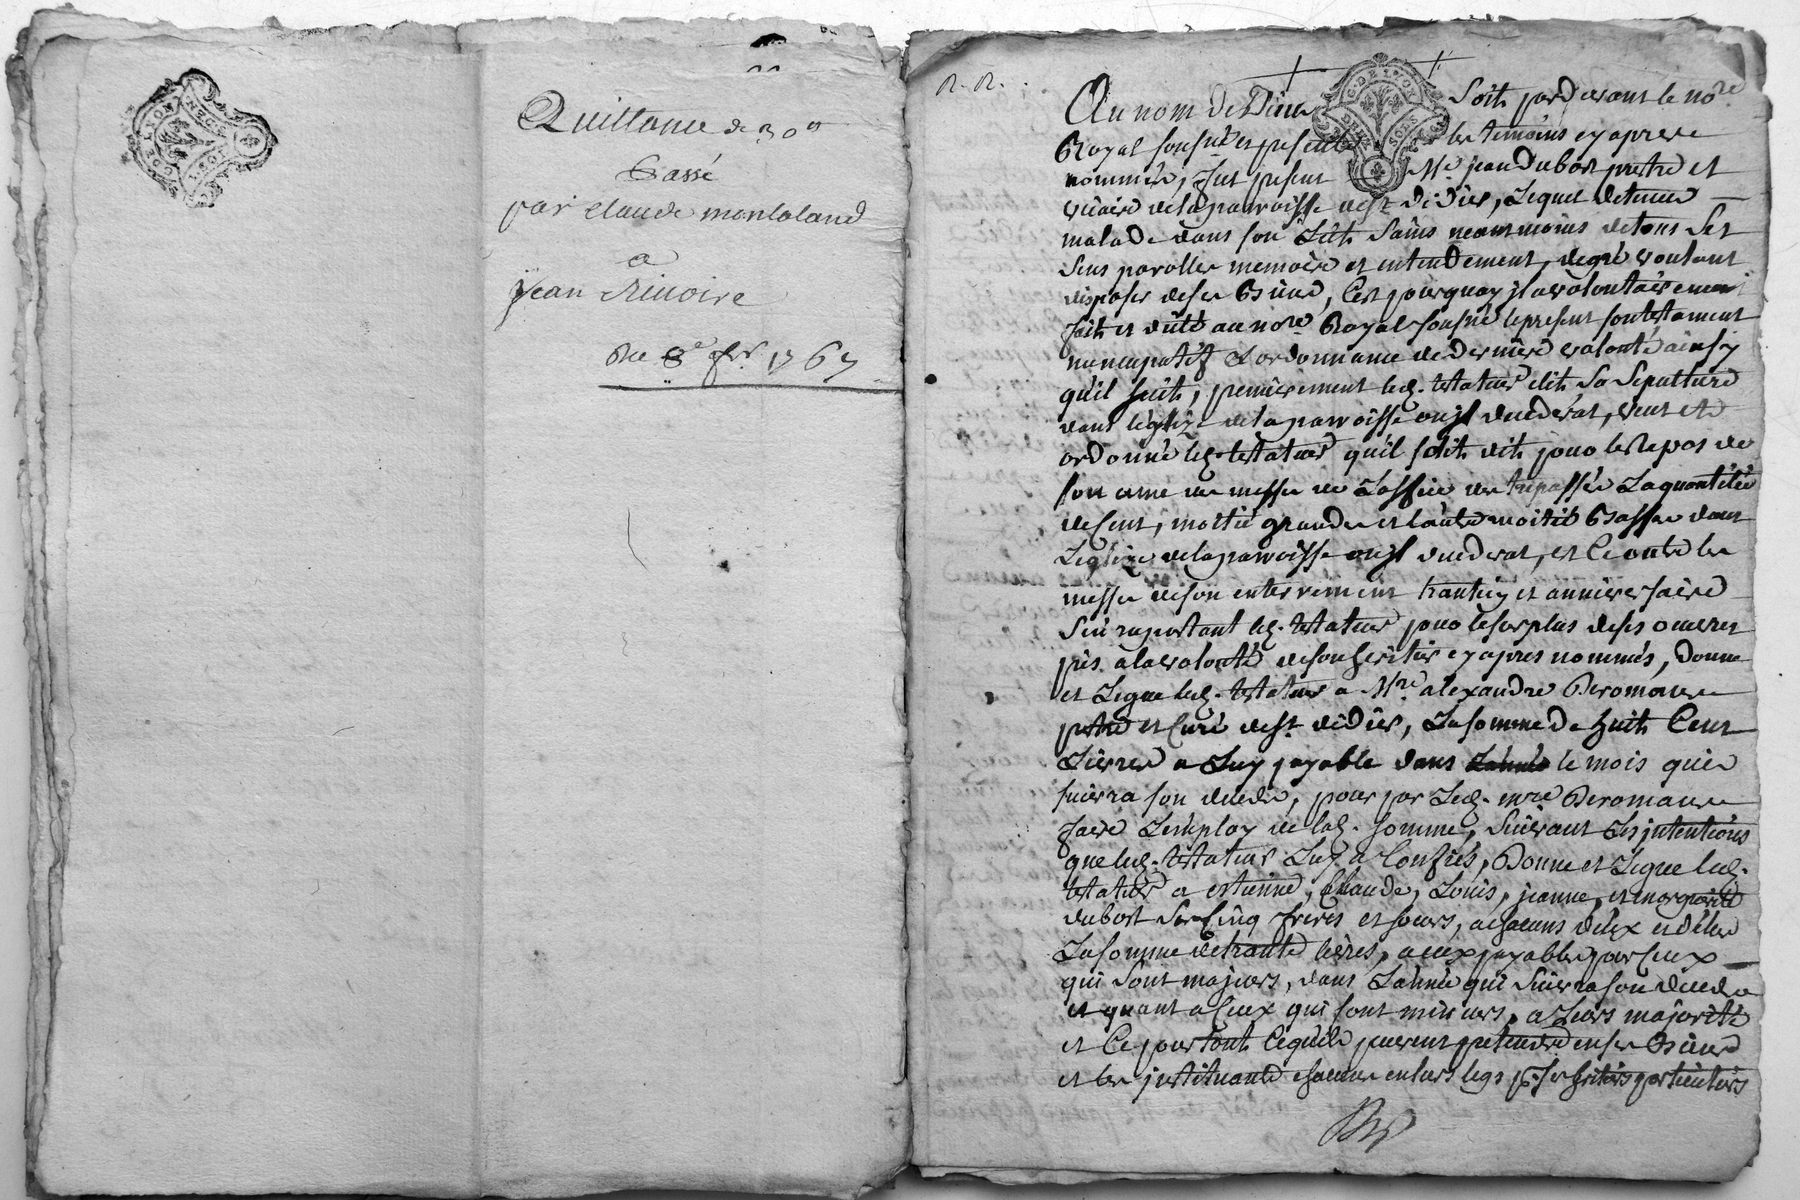 Quittance de 30ᵗᵗ
Passé
par claude montaland
a
jean
Du 8e fer. 1767
G. DE LYON
DEUX SOLS
R. R.
Au nom de Dieu Soit pardevant le nore
Royal soussné et presents les temoins cy apres
nommés, fut present Mre jean Dubost prestre et
vicaire de la parroisse de st didier, Lequel detenu
malade dans son Lith Sains neantmoins de tous Ses
Sens parolles memoire et entendement, de gré voulant
disposer de ses Biens, C'est pourquoy jl a volontairement
faith et dicté au nore Royal soussné le present son testament
nuncupatif et ordonnance de derniere volonté ainsy
qu'il suith, premierement led. testateur elith Sa Sepulture
dans léglize de la parroisse ou jl decedera, veut et
ordonne led. testateur qu'il soith dith pour le Repos de
son ame des messes de L'office des trepassés La quantitée
de Cent, moitié grandes et l'autre moitié Basses dans
L'eglize de la parroisse ou jl decedera, et Ce outre les
messes de son enterrement trantin et anniversaire
S'en raportant led. testateur pour le surplus de ses oeuvres
pies a la volonté de son heritier cy apres nommés, donne
et Legue led. testateur a Mre alexandre Deromans
prtre et Curé de st didier, La somme de huith Cent
Livres a Luy payable dans le mois qui
suivra son decès, pour par Led. mre Deromans
faire L'employ de lad. somme, Suivant Les jntentions
que led. testateur Luy a Confiés, Donne et Legue led.
testateur a estienne, Claude, Louis, jeanne, et margueritte
dubost Ses Cinq freres et soeurs, a chacuns d'eux et d'elles
La somme de trante livres, a eux payables pour Ceux
qui Sont majeurs, dans L'année qui Suivra son decès
et quant a Ceux qui sont mineurs, a Leurs majorité
et Ce pour tout Ce qu'ils peuvent pretendre en ses Biens
et les jnstituant chacuns en leurs legs pr. Ses heritiers particuliers